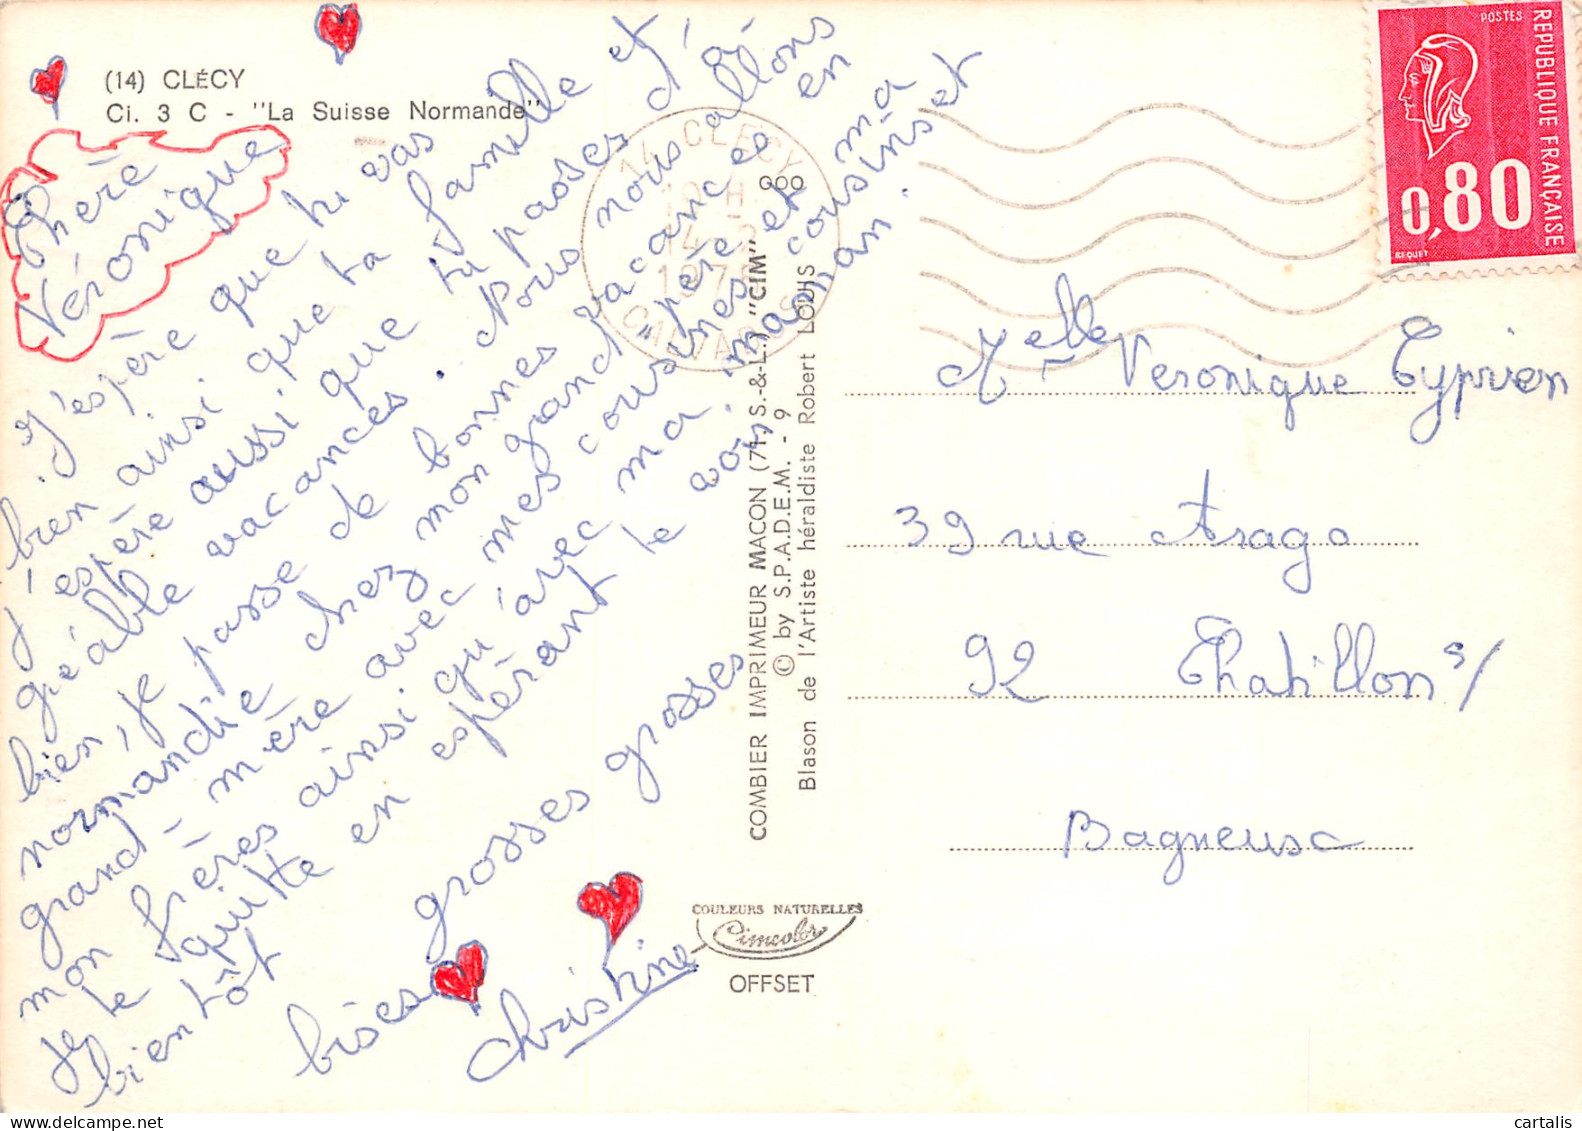 (14) CLÉCY
Ci. 3 C - "La Suisse Normande"
Chère
Véronique
J'espère que tu vas
bien ainsi que ta famille et
j'espère aussi que tu passes d'a
gréable vacances. Nous nous allons
bien, je passe de bonnes vacance en
normandie chez mon grand père et ma
grand-mère avec mes cousines cousins et
mon frères ainsi qu'avec ma maman.
Je te quitte en espérant te voir
bientôt
grosses grosses
bises
Christine
COMBIER IMPRIMEUR MACON (71, S.-&-L.) "CIM"
© by S.P.A.D.E.M. - 9
Blason de l'Artiste héraldiste Robert LOUIS
COULEURS NATURELLES
Cimcolor
OFFSET
14 CLECY
CALVADOS
POSTES
REPUBLIQUE FRANÇAISE
0,80
BEQUET
Melle Veronique Cyprien
39 rue Arago
92 Chatillon s/
Bagneusc
cartalis